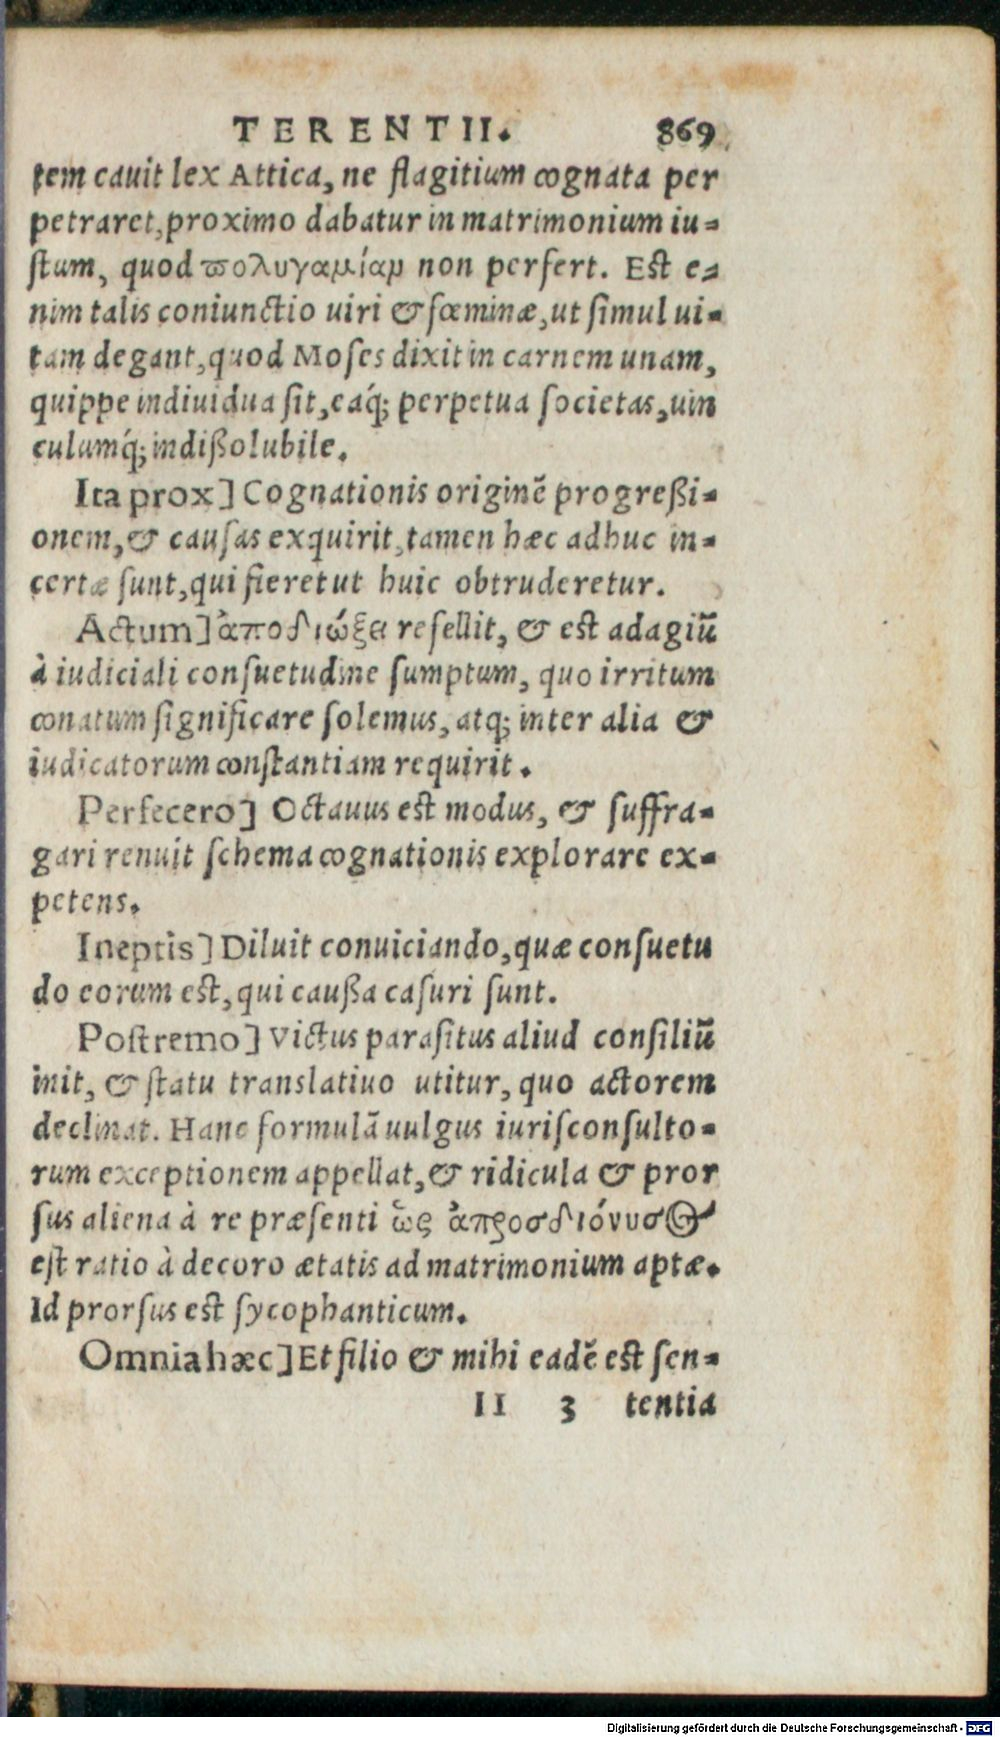 TERENTII. 869
tem cauit lex Attica, ne flagitium cognata per
petraret, proximo dabatur in matrimonium iu-
ſtum, quod πολυγαμίαμ non perfert. Eſt e-
nim talis coniunctio uiri & fœminæ, ut ſimul ui-
tam degant, quod Moſes dixit in carnem unam,
quippe indiuidua ſit, eaq́; perpetua ſocietas, uin
culumq́; indißolubile.
Ita prox] Cognationis originẽ progreßi-
onem, & cauſas exquirit, tamen hæc adhuc in-
certæ ſunt, qui fieret ut huic obtruderetur.
Actum] ἀποδιώξει refellit, & eſt adagiũ
à iudiciali conſuetudine ſumptum, quo irritum
conatum ſignificare ſolemus, atq; inter alia &
iudicatorum conſtantiam requirit.
Perfecero] Octauus eſt modus, & ſuffra-
gari renuit ſchema cognationis explorare ex-
petens.
Ineptis] Diluit conuiciando, quæ conſuetu
do eorum eſt, qui caußa caſuri ſunt.
Poſtremo] Victus paraſitus aliud conſiliũ
init, & ſtatu translatiuo utitur, quo actorem
declinat. Hanc formulã uulgus iuriſconſulto-
rum exceptionem appellat, & ridicula & pror
ſus aliena à re præſenti ὡς ἀπροσδιόνυσος
eſt ratio à decoro ætatis ad matrimonium aptæ.
Id prorſus eſt ſycophanticum.
Omnia hæc] Et filio & mihi eadẽ eſt ſen-
II 3 tentia
Digitalisierung gefördert durch die Deutsche Forschungsgemeinschaft - DFG